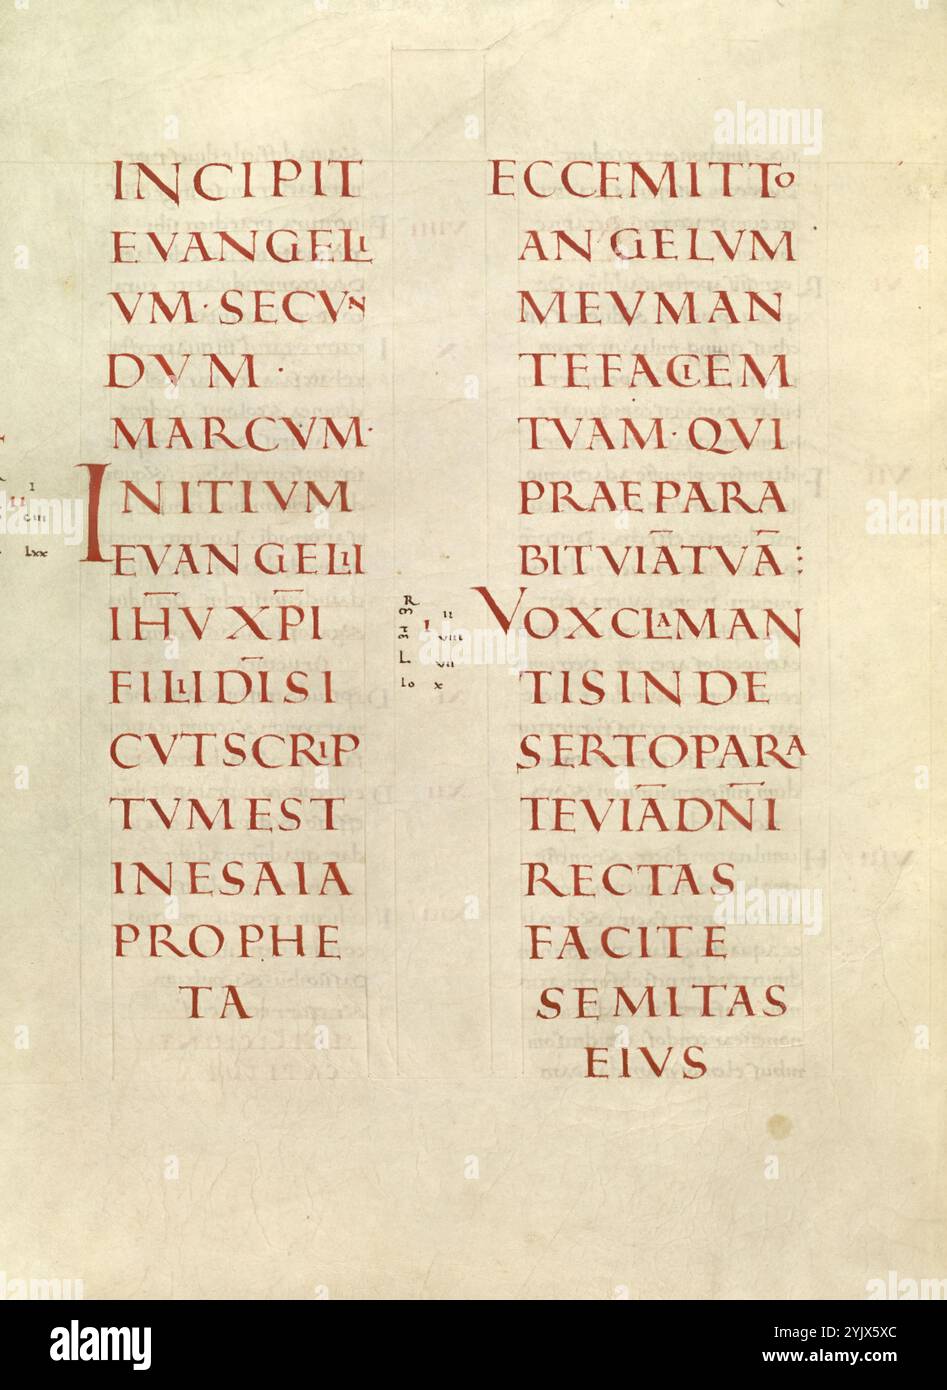 INCIPIT
EVANGELI
VM · SECVN
DVM ·
MARCVM ·
INITIVM
EVANGELII
IH̅V XP̅I
FILIIDI̅SI
CVTSCRIP
TVMEST
INESAIA
PROPHE
TA
ECCEMITTO
ANGELVM
MEVMAN
TEFACIEM
TVAM · QVI
PRAEPARA
BITVIA̅TVA̅ :
VOXCLAMAN
TISINDE
SERTOPARA
TEVIA̅DN̅I
RECTAS
FACITE
SEMITAS
EIVS
I
II
CIII
Lxx
R
II
I
VIII
L
VII
Lo
X
alamy
Image ID: 2YJX5XC
www.alamy.com